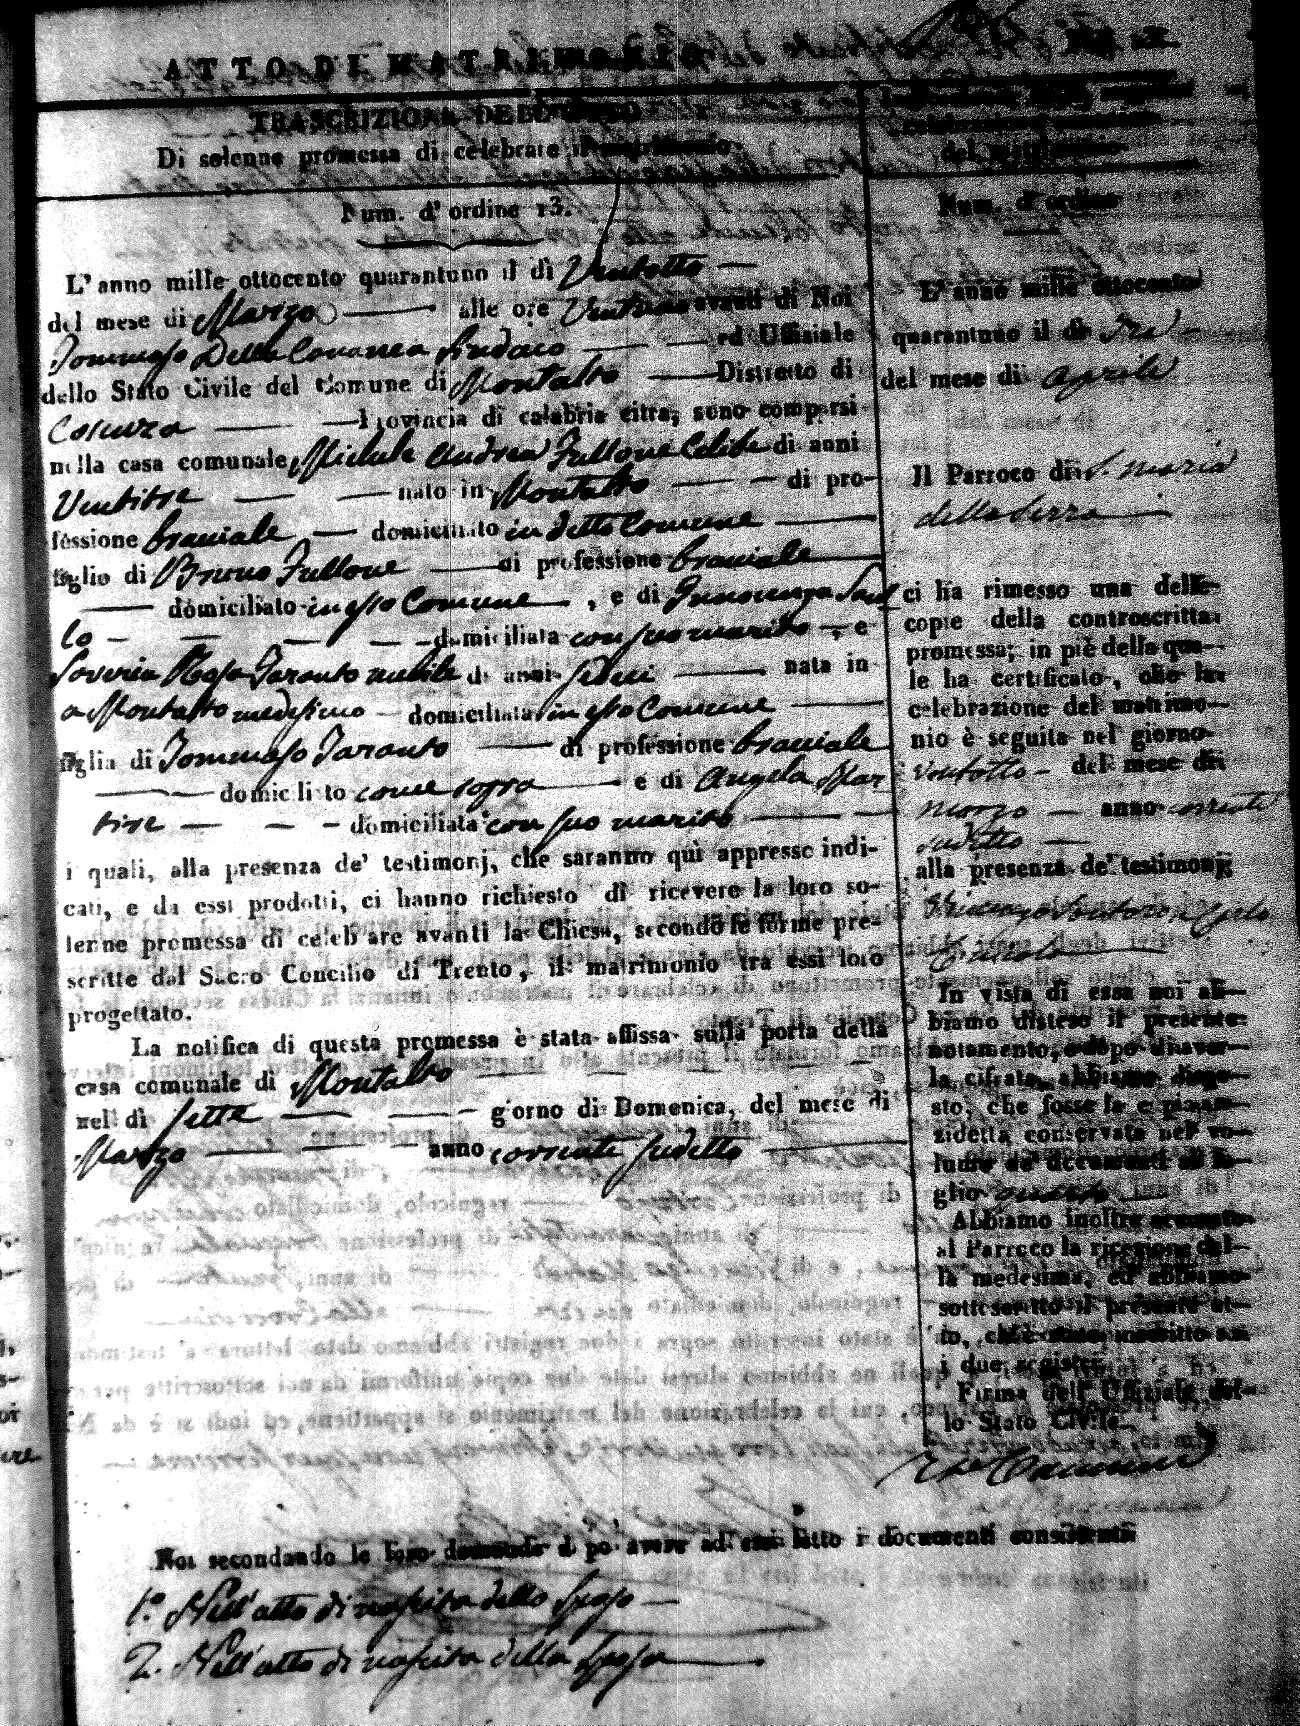 ATTO DI MATRIMONIO
TRASCRIZIONE DELL'ATTO
Di solenne promessa di celebrare il matrimonio.
Num. d'ordine 13.
L'anno mille ottocento quarantuno il dì Ventotto
del mese di Marzo alle ore Ventuno avanti di Noi
Tommaso Della Sindaco ed Uffiziale
dello Stato Civile del Comune di Montalto Distretto di
Cosenza Provincia di calabria citra, sono comparsi
nella casa comunale Michele Andrea Fullone Celibe di anni
Ventitre nato in Montalto di pro-
fessione bracciale domiciliato in detto Comune
figlio di Bruno Fullone di professione bracciale
domiciliato in esso Comune, e di Innocenza
lo domiciliata con suo marito, e
Saveria Rosa Taranto nubile di anni sedici nata in
a Montalto medesimo domiciliata in esso Comune
figlia di Tommaso Taranto di professione bracciale
domiciliato come sopra e di Angela Mar
tire domiciliata con suo marito
i quali, alla presenza de' testimonj, che saranno quì appresso indi-
cati, e da essi prodotti, ci hanno richiesto di ricevere la loro so-
lenne promessa di celebrare avanti la Chiesa, secondo le forme pre-
scritte dal Sacro Concilio di Trento, il matrimonio tra essi loro
progettato.
La notifica di questa promessa è stata affissa sulla porta della
casa comunale di Montalto
nell dì sette giorno di Domenica, del mese di
Marzo anno corrente sudetto
del matrimonio.
Num. d'ordine
L'anno mille ottocento
quarantuno il dì Tre
del mese di Aprile
Il Parroco di S. Maria
della Serra
ci ha rimesso una delle
copie della controscritta
promessa; in piè della qua-
le ha certificato, che la
celebrazione del matrimo-
nio è seguita nel giorno
Ventotto del mese di
Marzo anno corrente
sudetto
alla presenza de' testimonj
Vincenzo
In vista di essa noi ab-
biamo disteso il presente
notamento, e dopo di aver-
la cifrata, abbiamo dispo-
sto, che fosse la copia in-
zidetta conservata nel vo-
lume de' documenti al fo-
glio quarto
Abbiamo inoltre accusato
al Parroco la ricezione del-
la medesima, ed abbiamo
sottoscritto il presente at-
to, ch'è stato inscritto su
i due registri
Firma dell' Uffiziale del-
lo Stato Civile
Noi secondando le loro domande dopo avere ad essi letto i documenti consistenti
1.º Nell'atto di nascita dello sposo
2. Nell'atto di nascita della sposa